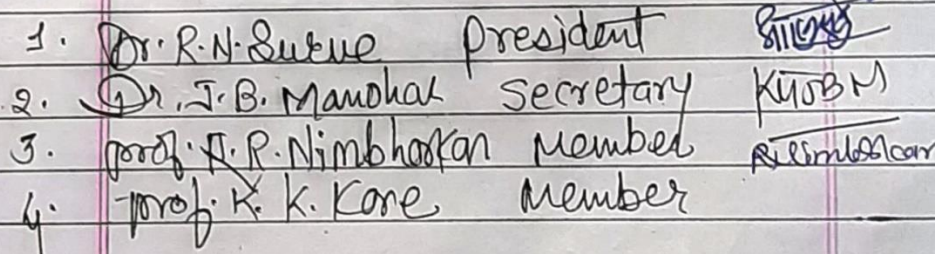 1. Dr. R. N. Surve President
2. Dr. J. B. Manohar Secretary
3. Prof. A. R. Nimbhorkar Member
4. Prof. K. K. Kore Member